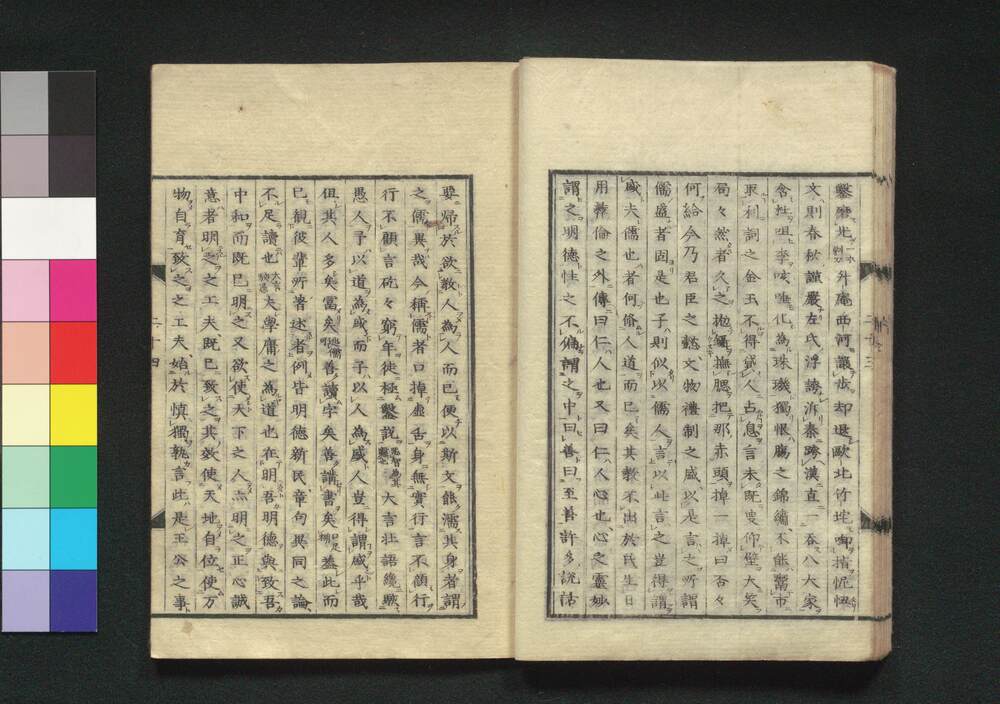 升庵西河讓步却退歐北竹垞啣指恇恇
文則春秋謹嚴左氏浮誇泝秦跨漢直一吞八大家
含牲咀華咳唾化為珠璣獨恨膓之錦繡不能鬻市
取利詞之金玉不得貸人占息言未既叟仰壁大笑
局々然者久之拋編撫腮把那赤頭掉一掉曰否々
何給今乃君臣之懿文物禮制之盛以是言之所謂
儒盛者固是也子則似以儒人言以此言之豈得謂
盛夫儒也者何脩人道而已矣其教不出於民生日
用彜倫之外傳曰仁人也又曰仁人心也心之靈妙
謂之明德性之不偏謂之中曰善曰至善許多說話
要歸於欲敎人為人而已便以斯文能濡其身者謂
之儒異哉今稱儒者口掉虛舌身無實行言不顧行
行不顧言矻々窮年徒極鑿說大言壯語纔賺
愚人子以道為盛而子以人為盛人豈得謂盛乎哉
但其人多矣富矣善讀字矣善講書矣盖此而
已觀彼輩所著述者例皆明德新民章句異同之論
不足讀也夫學庸之為道也在明吾明德與致吾
中和而既已明之又欲使天下之人亦明之正心誠
意者明之之工夫既已致之其效使天地自位使万
物自育致之之工夫始於慎獨孰言此是王公之事
二十四